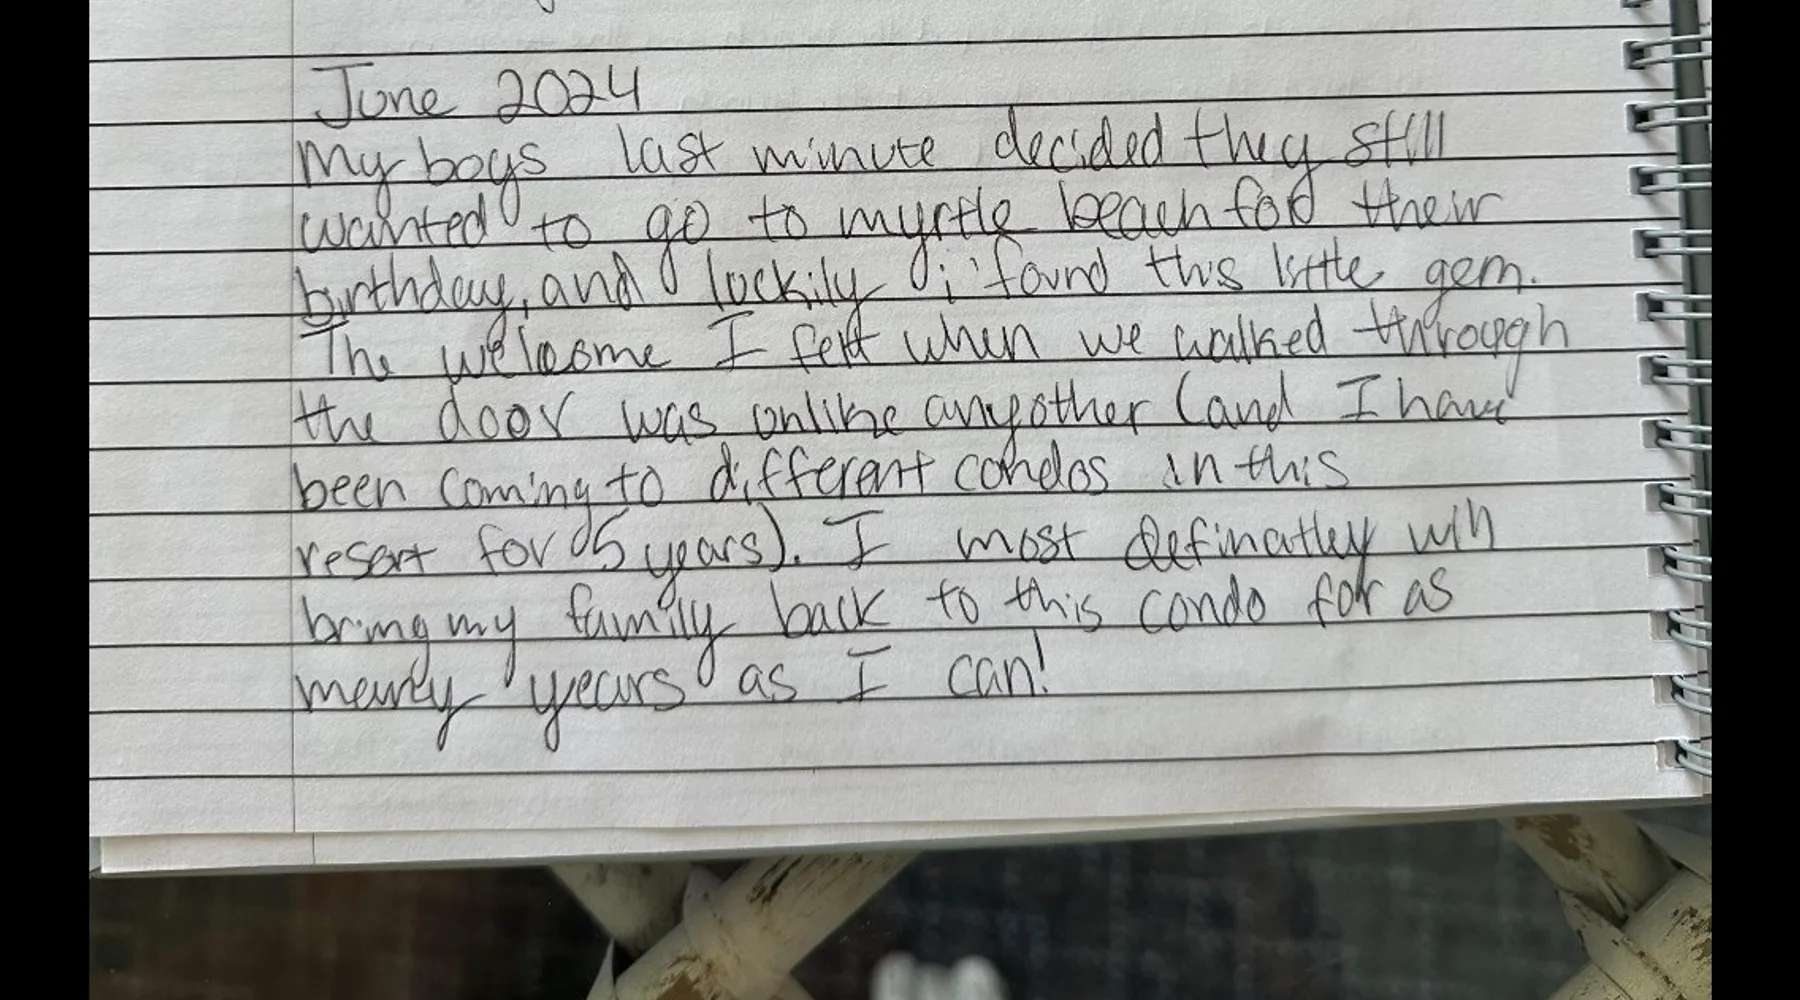 June 2024
My boys last minute decided they still
wanted to go to myrtle beach for their
birthday, and luckily i found this little gem.
The welcome I felt when we walked through
the door was unlike anyother (and I have
been coming to different condos in this
resort for 5 years). I most definatley will
bring my family back to this condo for as
many years as I can!